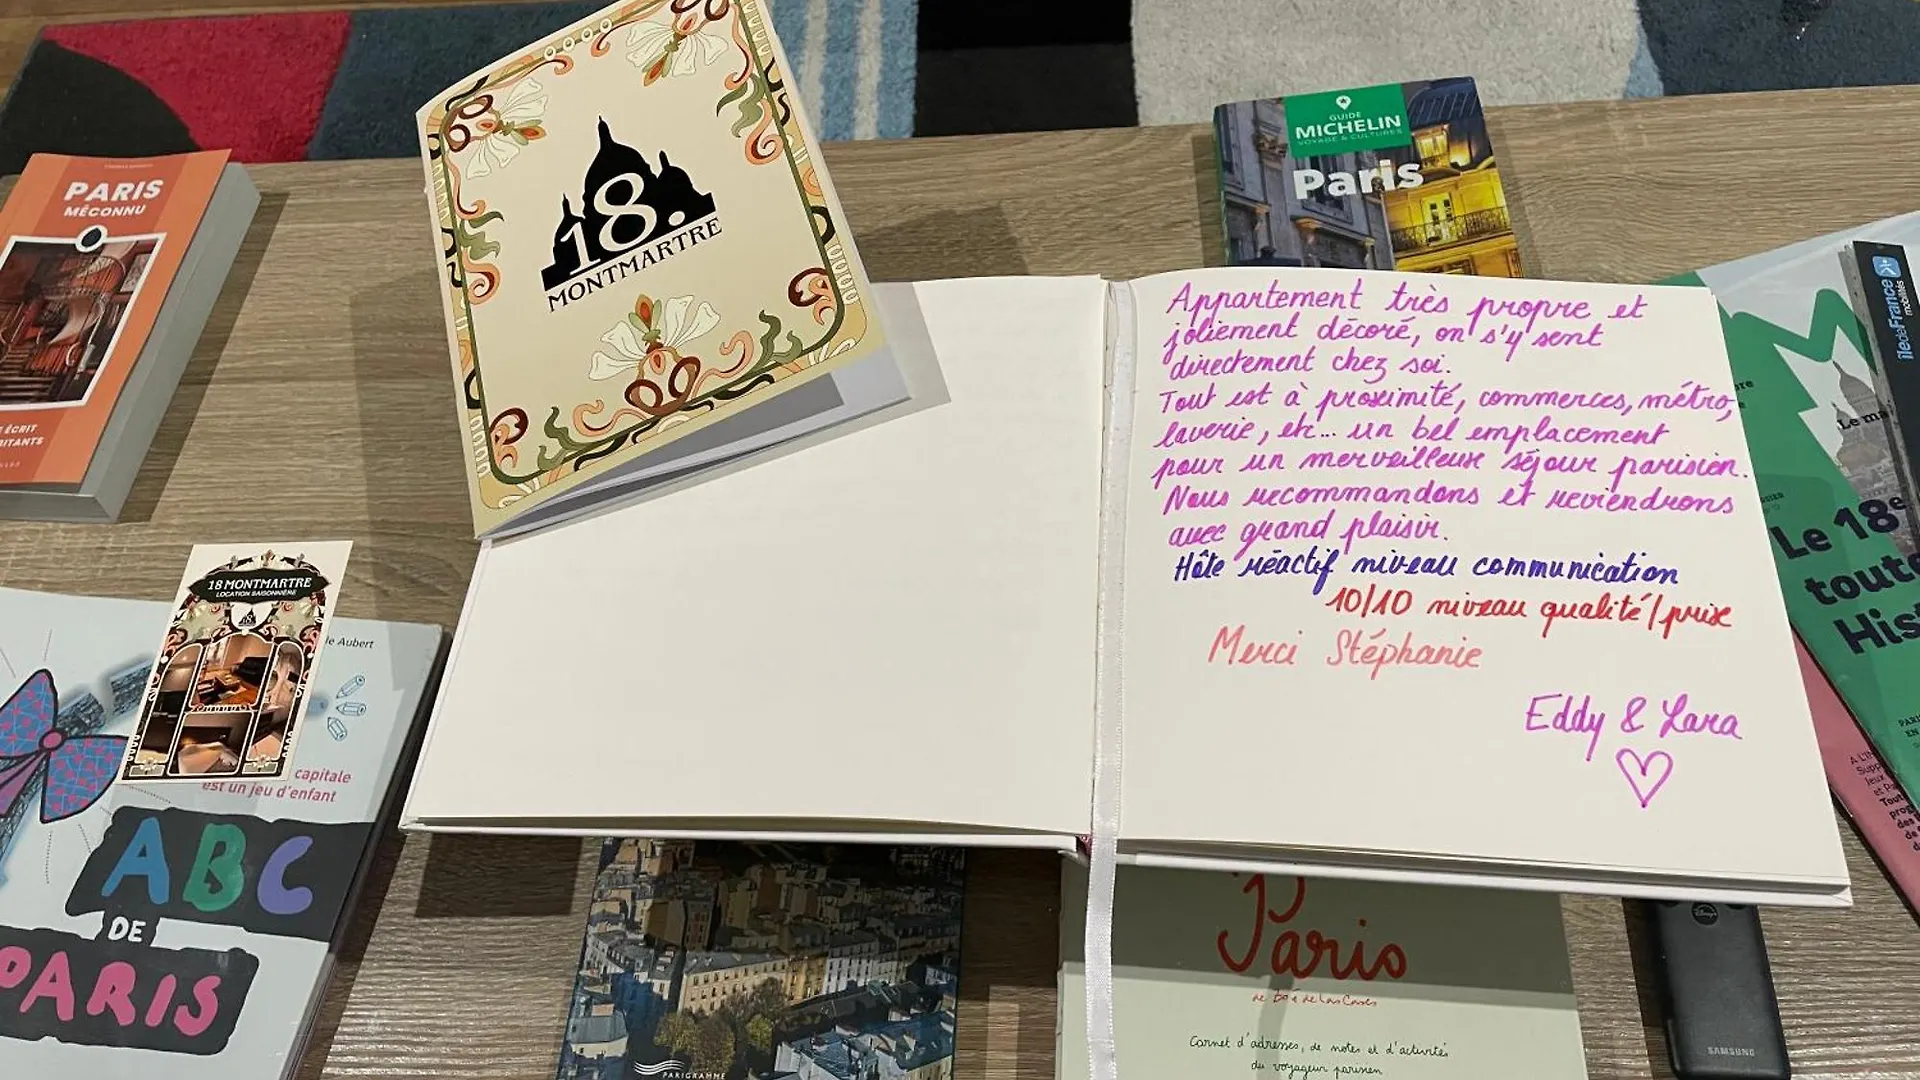 PARIS
MÉCONNU
18.
MONTMARTRE
GUIDE
MICHELIN
VOYAGE & CULTURES
Paris
Appartement très propre et
joliement décoré, on s'y sent
directement chez soi.
Tout est à proximité, commerces, métro,
laverie, etc... un bel emplacement
pour un merveilleux séjour parisien.
Nous recommandons et reviendrons
avec grand plaisir.
Hôte réactif niveau communication
10/10 niveau qualité/prix
Merci Stéphanie
Eddy & Lara
îledeFrance
mobilités
Le 18e
toute
His
18 MONTMARTRE
LOCATION SAISONNIÈRE
18.
Aubert
capitale
est un jeu d'enfant
ABC
DE
PARIS
PARIGRAMME
Paris
de Bo é de Las Cases
Carnet d'adresses, de notes et d'activités
du voyageur parisien
Disney+
SAMSUNG